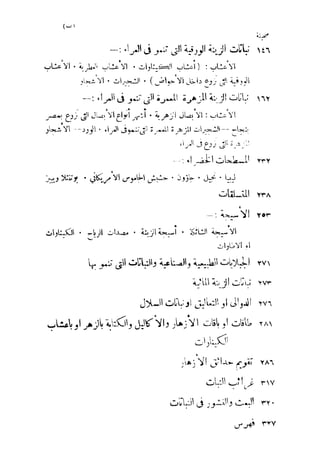 (ب)
صحيفة
١٤٦ نباتات الزينة الورقية التى تنمو فى العراء :—
الأعشاب : (أعشاب الكينارات ، الأعشاب المطربة ، الأعشاب
الورقية التى تزرع داخل الأحواش) ، الشجيرات ، الأشجار
١٦٢ نباتات الزينة المزهرة المعمرة التى تنمو فى العراء :—
الأعشاب : الأبصال الزهرية ، أشهر أنواع الأبصال التى تزرع بمصر
بنجاح — الشجيرات المزهرة المعمرة التى تنمو فى العراء ، الورد — الأشجار
المزهرة التى تزرع فى العراء
٢٣٢ المسطحات الخضراء :—
ليبيا ، نجيل ، جازون ، حشيش الجاموس الأمريكانى ،
٢٣٨ المتسلقات
٢٥٣ الأسيجة :—
الأسيجة الشائكة ، أسيجة الزينة ، مصدات الرياح ، الكينارات
او الاطارات
٢٧١ الجبلايات الطبيعية والصناعية والنباتات التى تنمو بها
٢٧٣ نباتات الزينة المائية
٢٧٦ الدوالى او التعاليق او نباتات السلال
٢٨١ طاقات او باقات الأزهار والأكاليل والكتابة بالزهر او باعشاب
الكينارات
٢٨٦ تقويم حدائق الأزهار
٣١٧ غرائب النبات
٣٢٠ البعث والنشور فى النباتات
٣٢٧ فهرس